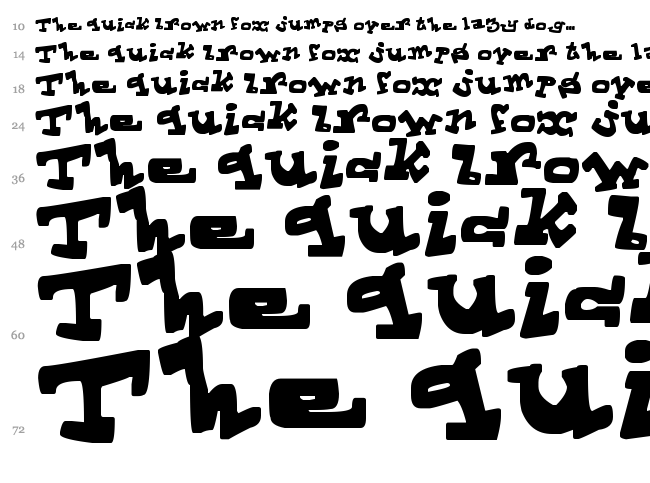 10 The quick brown fox jumps over the lazy dog...
14 The quick brown fox jumps over the la
18 The quick brown fox jumps ove
24 The quick brown fox ju
36 The quick brow
48 The quick b
60 The quic
72 The qui